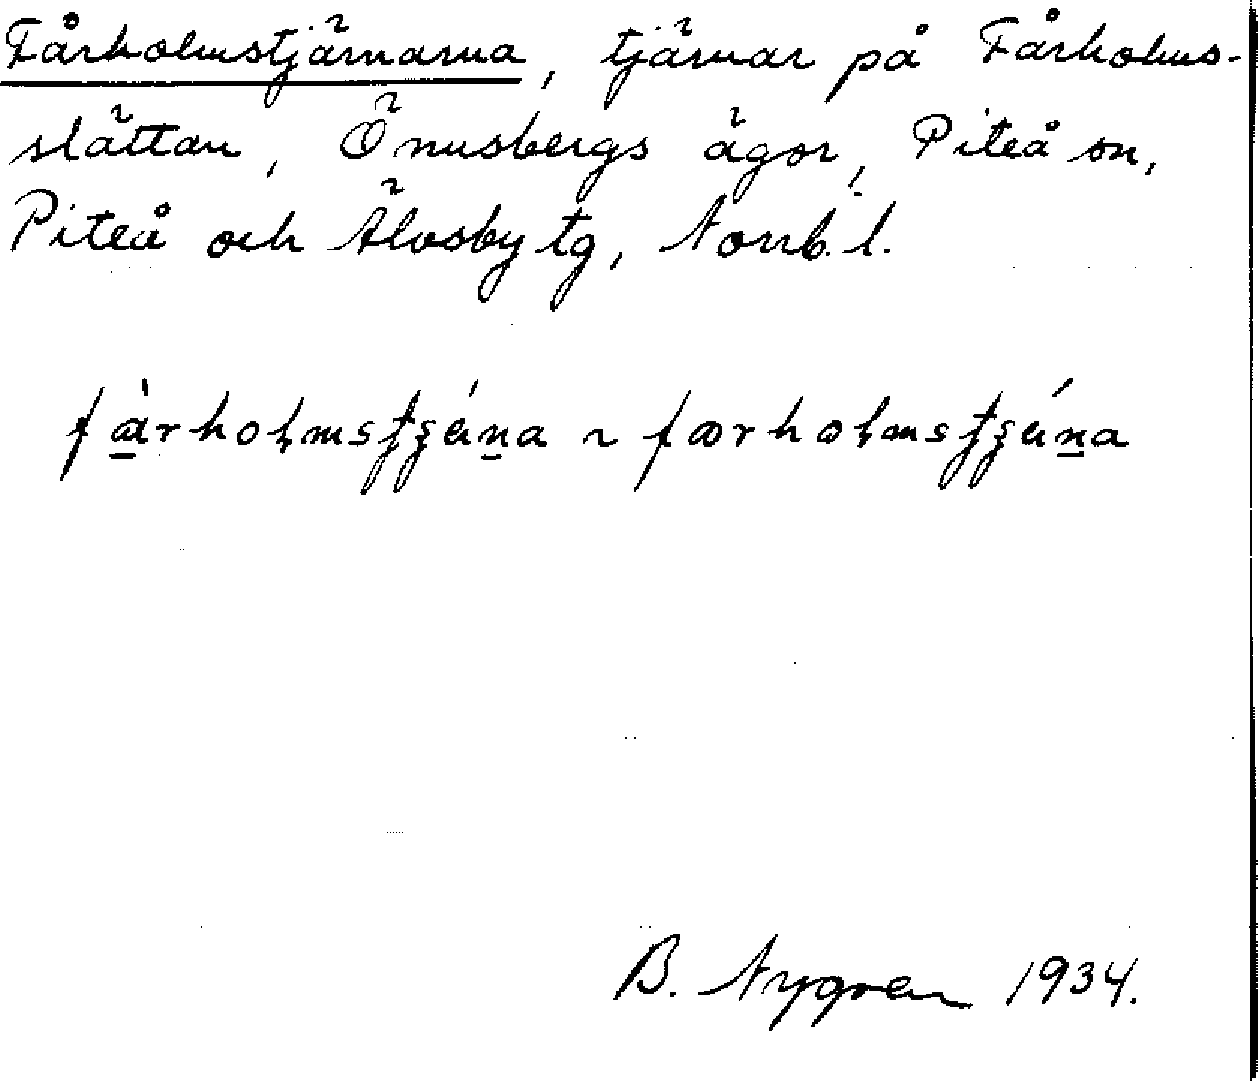 Fårholmstjärnarna, tjärnar på Fårholms-
slättan, Önusbergs ägor, Piteå sn,
Piteå och Älvsby tg, Norrb. l.
B. Nygren 1934.